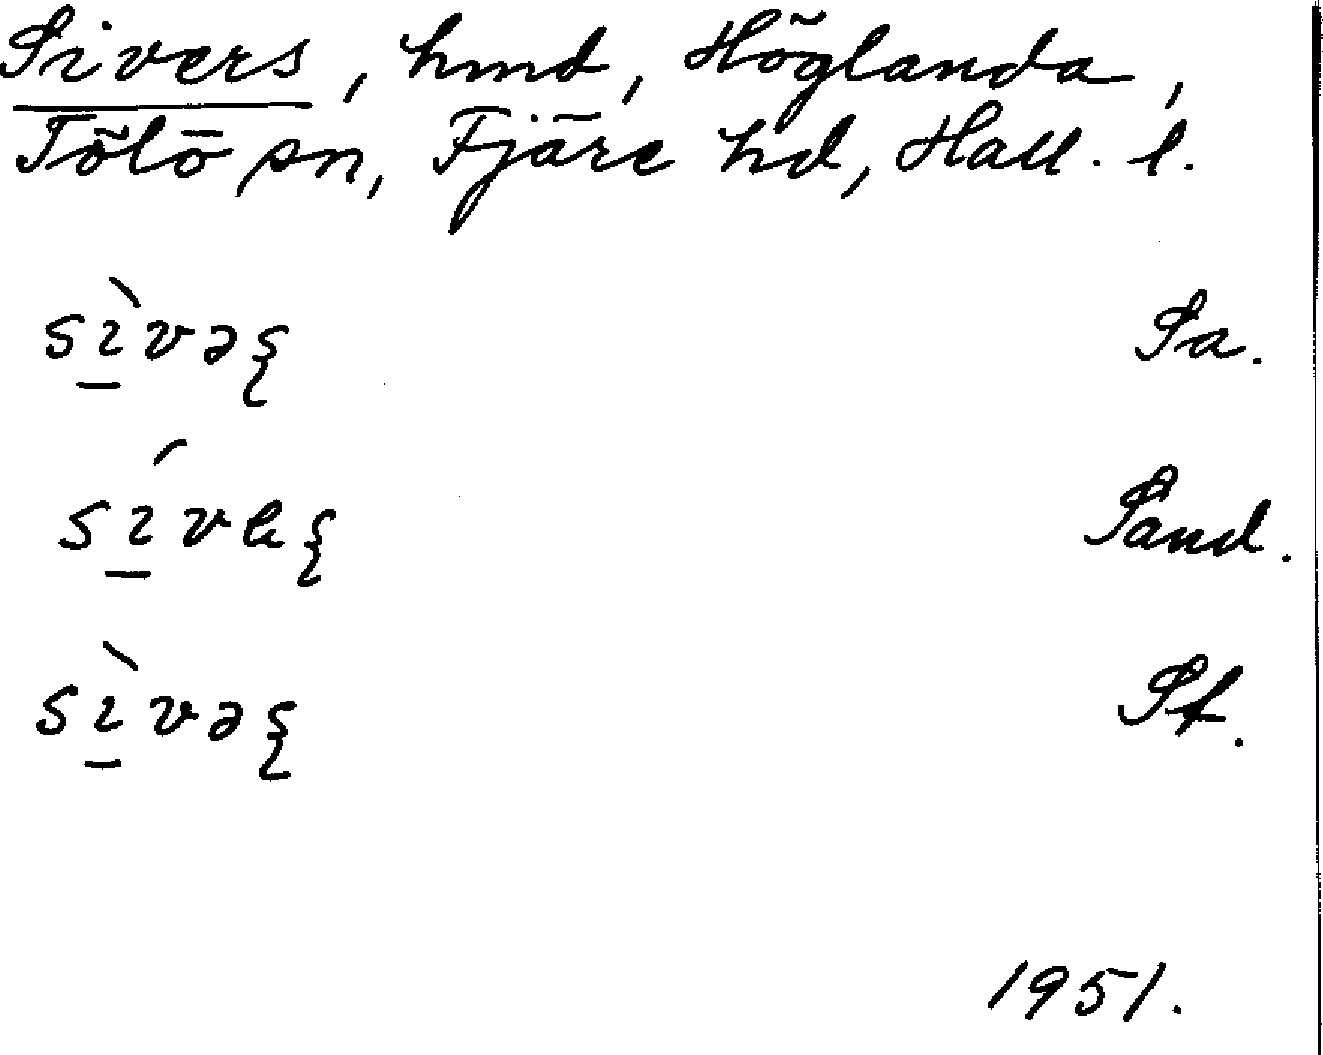 Sivers, hmd, Höglanda,
Tölö sn, Fjäre hd, Hall. l.
sì̱vəʂ Sa.
sí̱vɐʂ Sand.
sì̱vəʂ St.
1951.